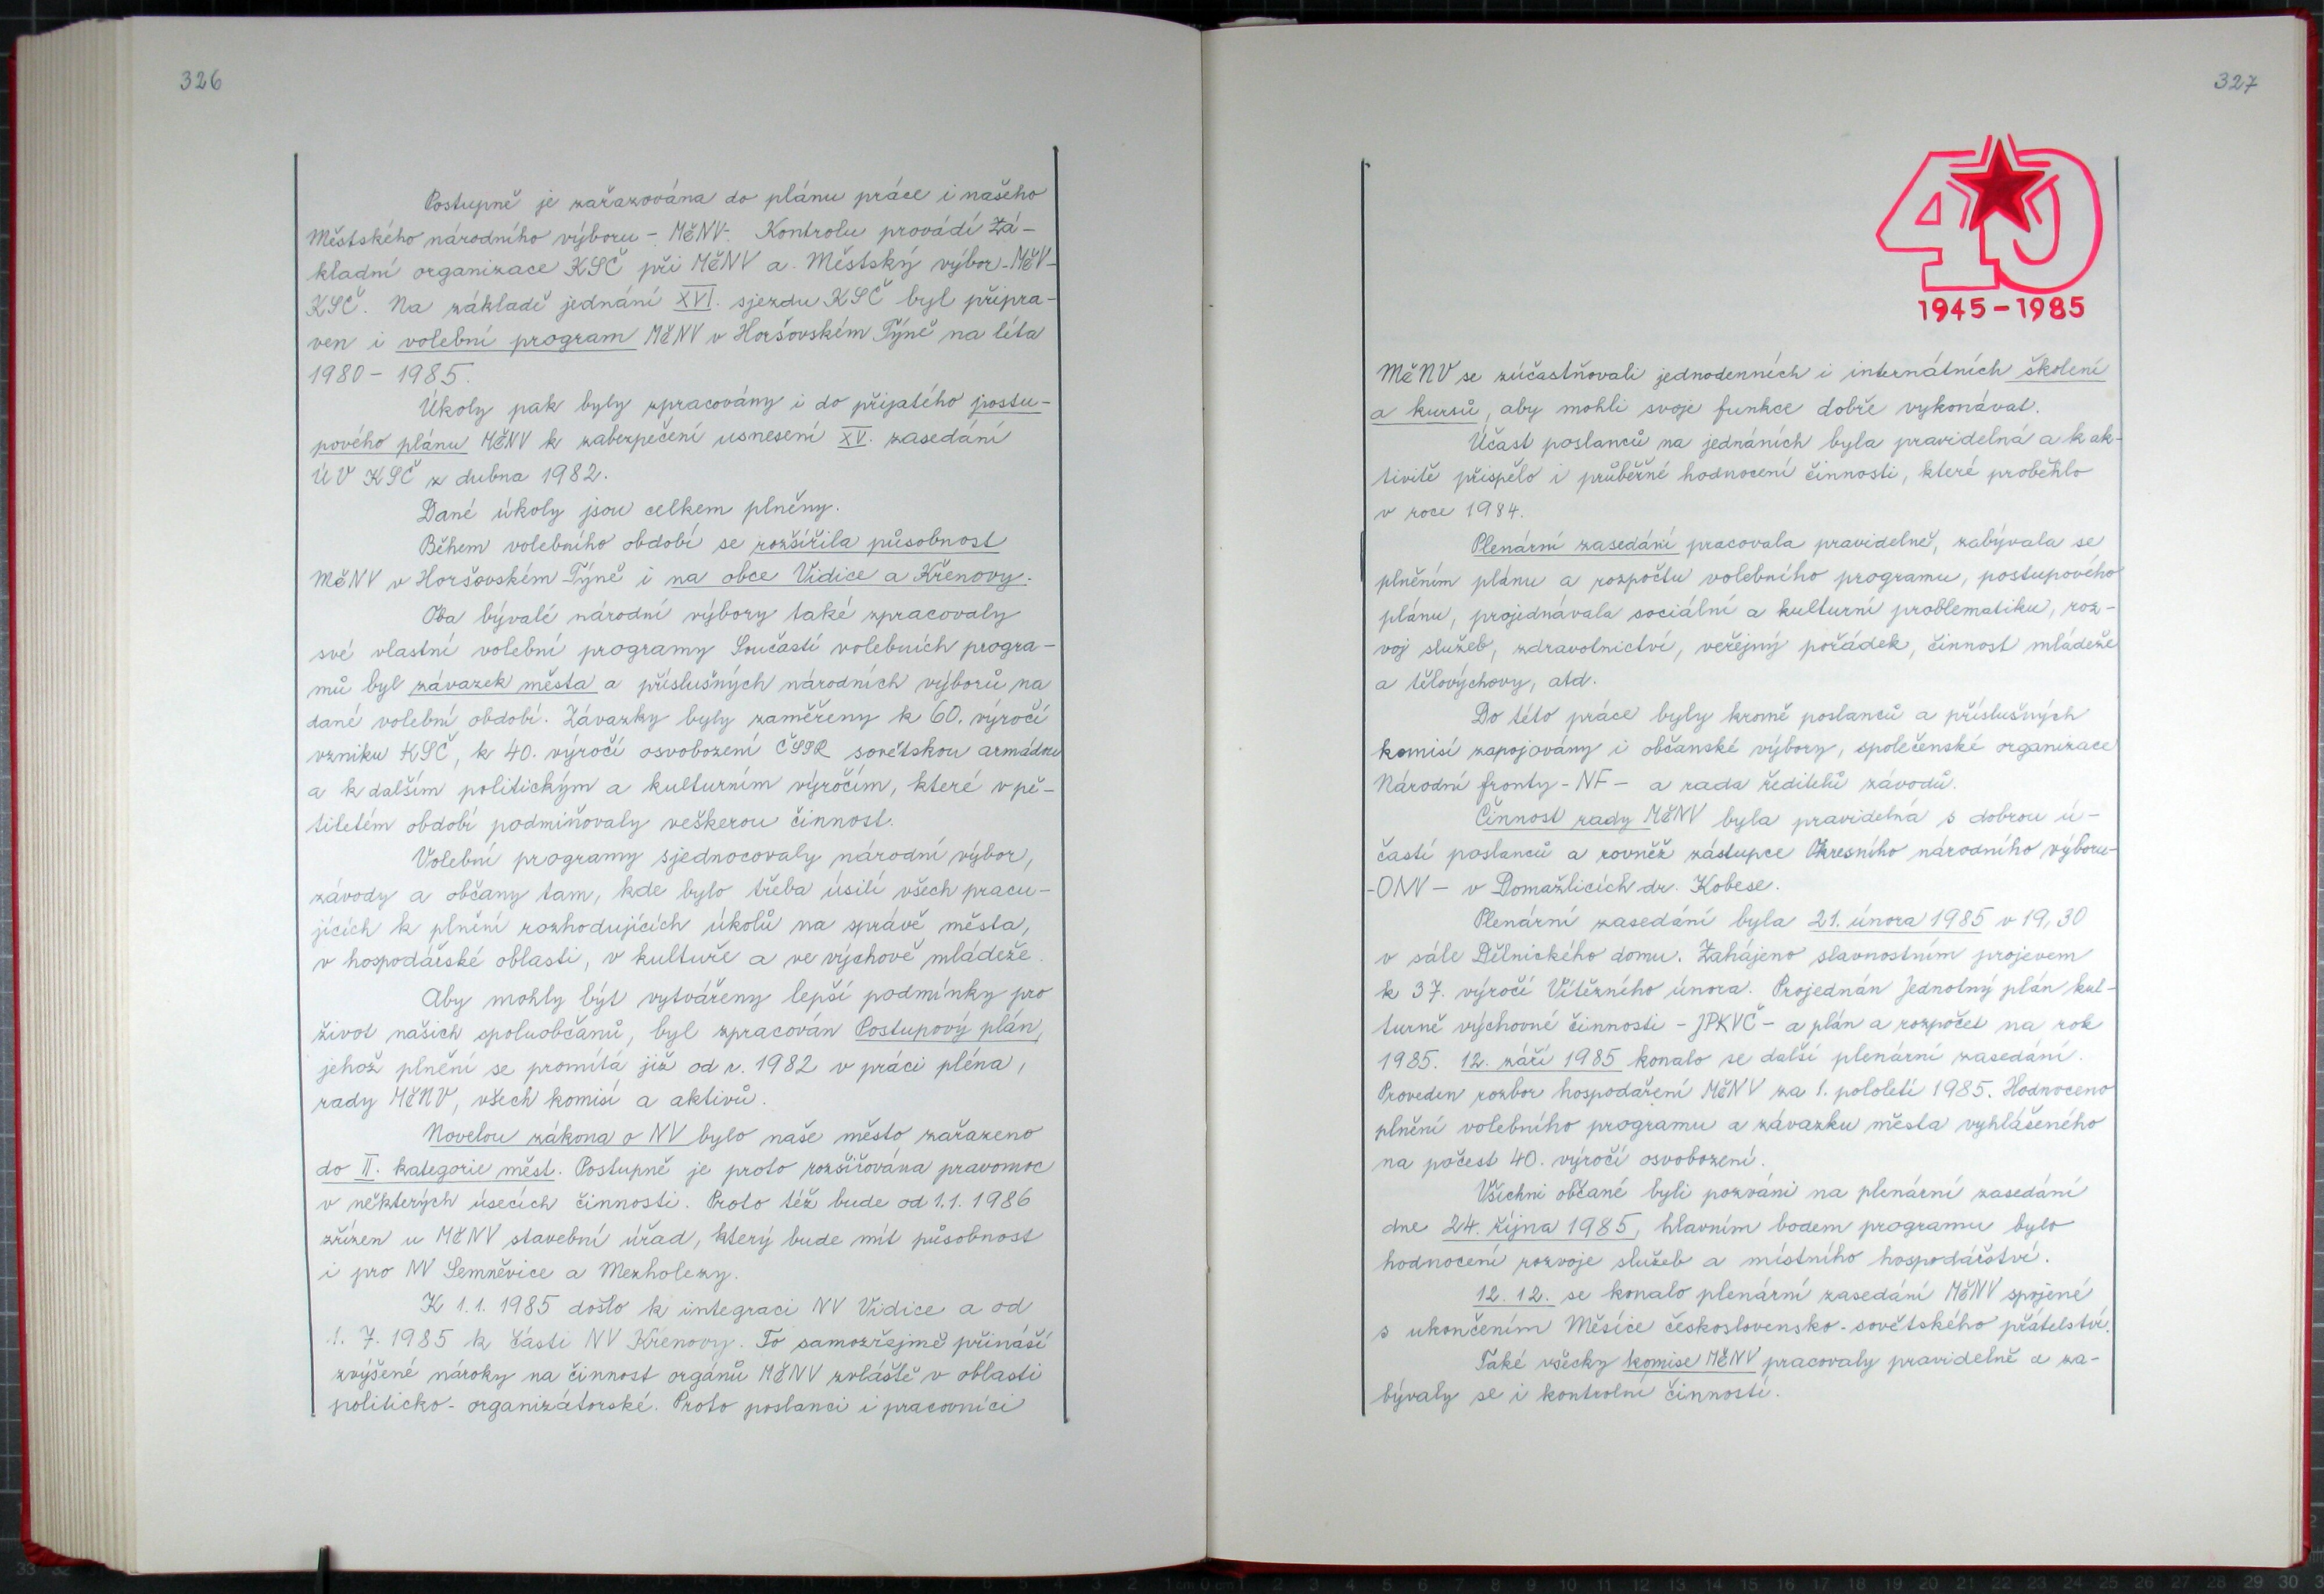 326
Postupně je zařazována do plánu práce i našeho
Městského národního výboru - MěNV-. Kontrolu provádí Zá-
kladní organizace KSČ při MěNV a Městský výbor -MěV-
KSČ. Na základě jednání XVI. sjezdu KSČ byl připra-
ven i volební program MěNV v Horšovském Týně na léta
1980 - 1985.
Úkoly pak byly zpracovány i do přijatého postu-
pového plánu MěNV k zabezpečení usnesení XV. zasedání
ÚV KSČ z dubna 1982.
Dané úkoly jsou celkem plněny.
Během volebního období se rozšířila působnost
MěNV v Horšovském Týně i na obce Vidice a Křenovy.
Oba bývalé národní výbory také zpracovaly
své vlastní volební programy Součástí volebních progra-
mů byl závazek města a příslušných národních výborů na
dané volební období. Závazky byly zaměřeny k 60. výročí
vzniku KSČ, k 40. výročí osvobození ČSSR sovětskou armádou
a k dalším politickým a kulturním výročím, které v pě-
tiletém období podmiňovaly veškerou činnost.
Volební programy sjednocovaly národní výbor,
závody a občany tam, kde bylo třeba úsilí všech pracu-
jících k plnění rozhodujících úkolů na správě města,
v hospodářské oblasti, v kultuře a ve výchově mládeže.
Aby mohly být vytvářeny lepší podmínky pro
život našich spoluobčanů, byl zpracován Postupový plán,
jehož plnění se promítá již od r. 1982 v práci pléna,
rady MěNV, všech komisí a aktivů.
Novelou zákona o NV bylo naše město zařazeno
do II. kategorie měst. Postupně je proto rozšiřována pravomoc
v některých úsecích činnosti. Proto též bude od 1.1. 1986
zřízen u MěNV stavební úřad, který bude mít působnost
i pro NV Semněvice a Mezholezy.
K 1.1. 1985 došlo k integraci NV Vidice a od
1. 7. 1985 k části NV Křenovy. To samozřejmě přináší
zvýšené nároky na činnost orgánů MěNV zvláště v oblasti
politicko - organizátorské. Proto poslanci i pracovníci
327
40
1945-1985
MěNV se zúčastňovali jednodenních i internátních školení
a kursů, aby mohli svoje funkce dobře vykonávat.
Účast poslanců na jednáních byla pravidelná a k ak-
tivitě přispělo i průběžné hodnocení činnosti, které proběhlo
v roce 1984.
Plenární zasedání pracovala pravidelně, zabývala se
plněním plánu a rozpočtu volebního programu, postupového
plánu, projednávala sociální a kulturní problematiku, roz-
voj služeb, zdravotnictví, veřejný pořádek, činnost mládeže
a tělovýchovy, atd.
Do této práce byly kromě poslanců a příslušných
komisí zapojovány i občanské výbory, společenské organizace
Národní fronty - NF - a rada ředitelů závodů.
Činnost rady MěNV byla pravidelná s dobrou ú-
častí poslanců a rovněž zástupce Okresního národního výboru-
-ONV - v Domažlicích dr. Kobese.
Plenární zasedání byla 21. února 1985 v 19,30
v sále Dělnického domu. Zahájeno slavnostním projevem
k 37. výročí Vítězného února. Projednán Jednotný plán kul-
turně výchovné činnosti - JPKVČ - a plán a rozpočet na rok
1985. 12. září 1985 konalo se další plenární zasedání.
Proveden rozbor hospodaření MěNV za 1. pololetí 1985. Hodnoceno
plnění volebního programu a závazku města vyhlášeného
na počest 40. výročí osvobození.
Všichni občané byli pozváni na plenární zasedání
dne 24. října 1985, hlavním bodem programu bylo
hodnocení rozvoje služeb a místního hospodářství.
12. 12. se konalo plenární zasedání MěNV spojené
s ukončením Měsíce československo-sovětského přátelství.
Také všecky komise MěNV pracovaly pravidelně a za-
bývaly se i kontrolní činností.